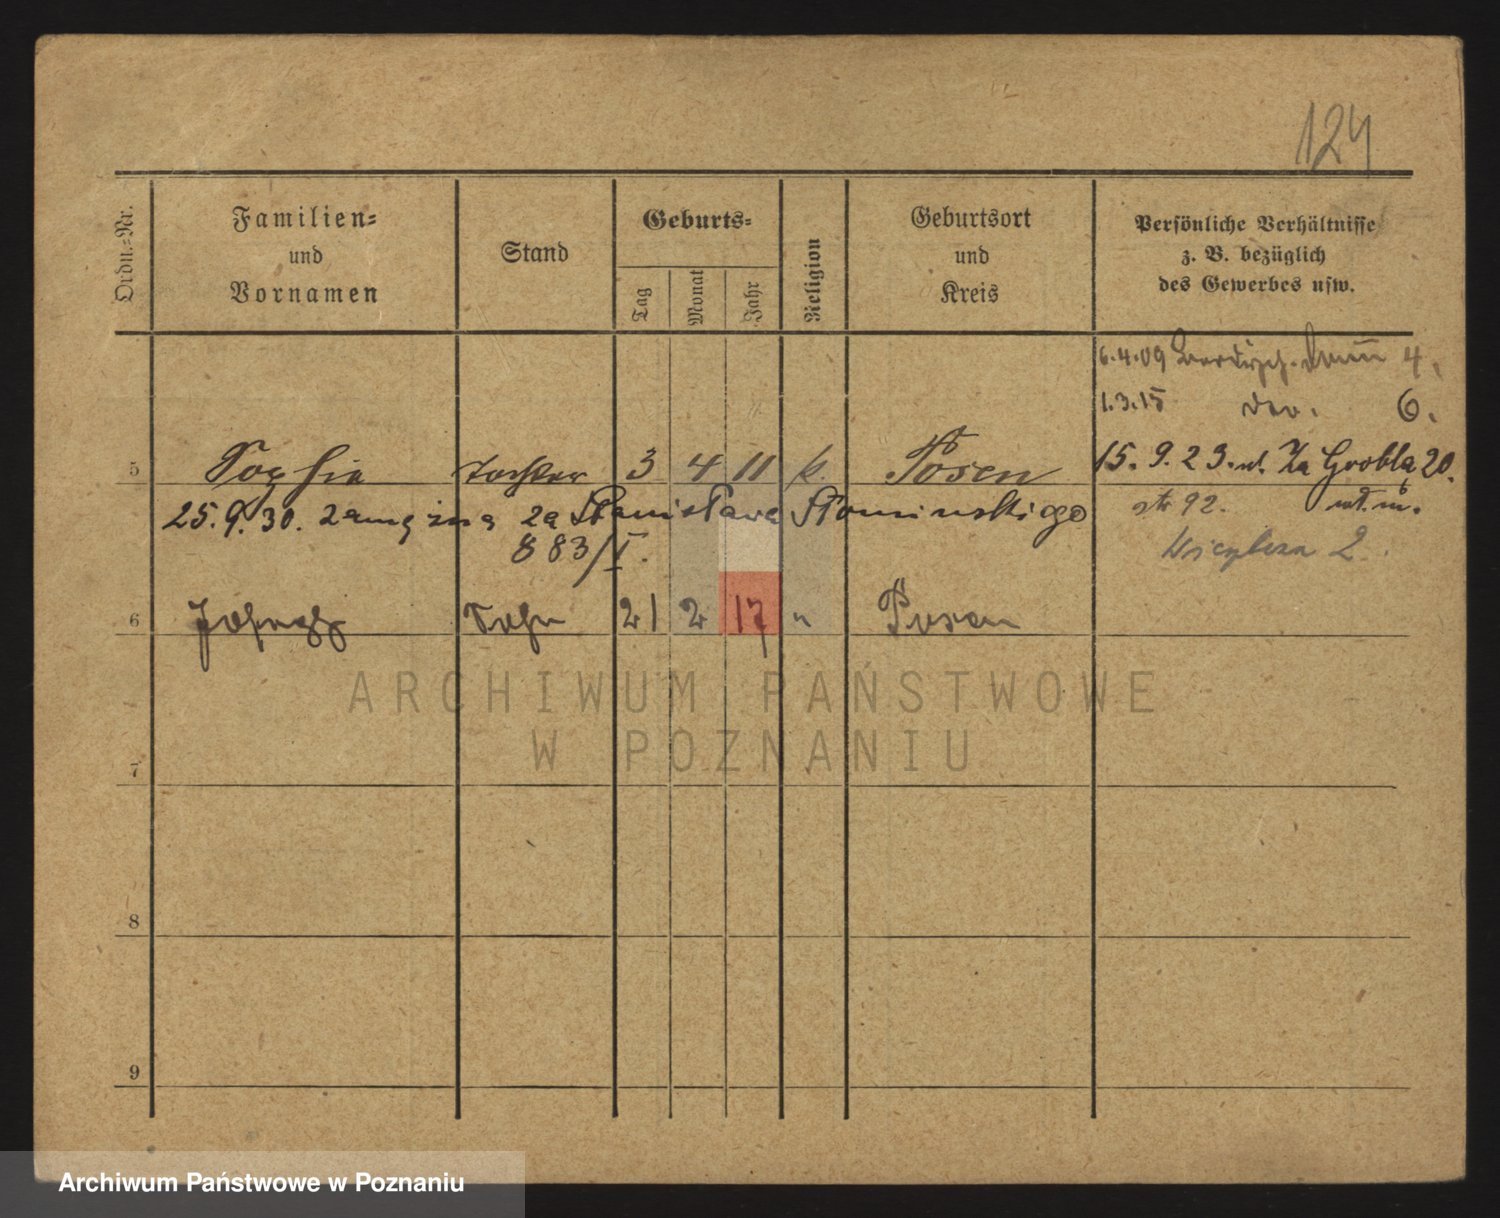 124
Ordn.=Nr.
Familien=
und
Vornamen
Stand
Geburts=
Tag
Monat
Jahr
Religion
Geburtsort
und
Kreis
Persönliche Verhältnisse
z. B. bezüglich
des Gewerbes usw.
6.4.09 4.
1.3.15 6.
5 Sophie Tochter 3 4 11 k. Posen 15.9.23. ul. Za Groblą 20.
25.9.30. zamężna za Stanisława Słomińskiego str 92.
883/I.
6 Sohn 21 2 17 " Posen
ARCHIWUM PAŃSTWOWE
W POZNANIU
7
8
9
Archiwum Państwowe w Poznaniu